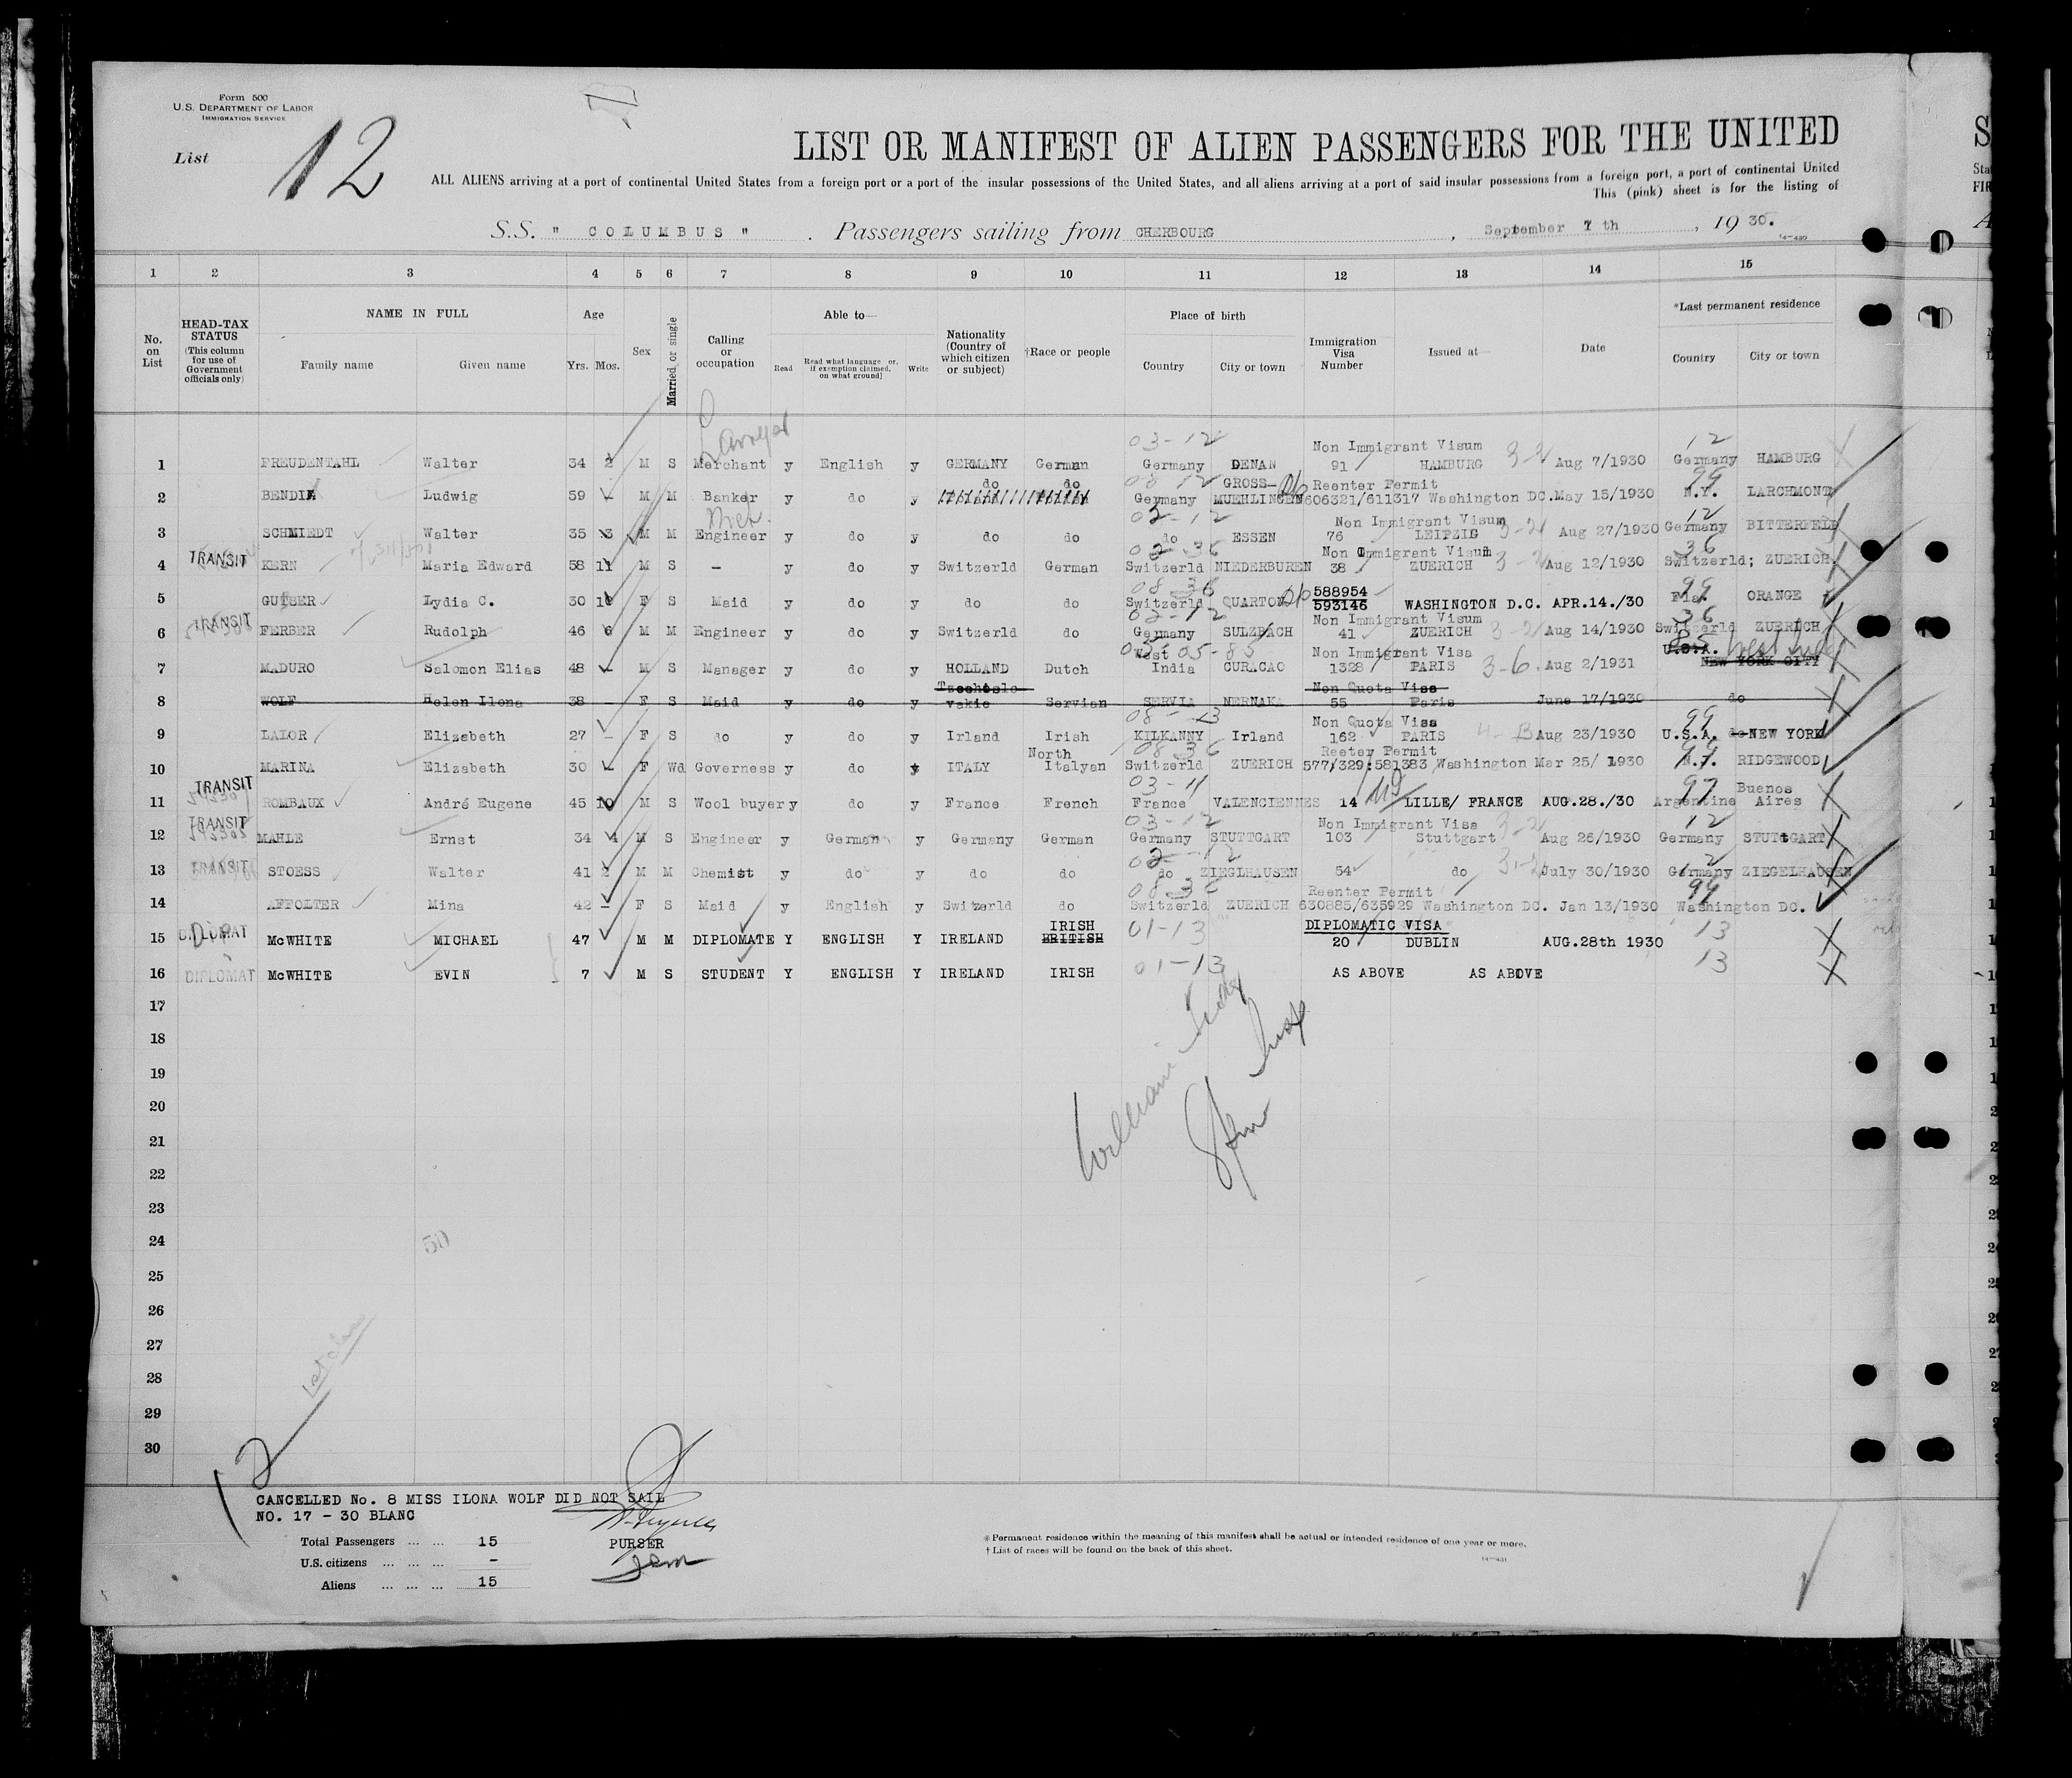 Form 500
U.S. DEPARTMENT OF LABOR
IMMIGRATION SERVICE
List 12
LIST OR MANIFEST OF ALIEN PASSENGERS FOR THE UNITED
ALL ALIENS arriving at a port of continental United States from a foreign port or a port of the insular possessions of the United States, and all aliens arriving at a port of said insular possessions from a foreign port, a port of continental United
This (pink) sheet is for the listing of
S.S. " COLUMBUS ". Passengers sailing from CHERBOURG, September 7 th, 1930.
1 2 3 4 5 6 7 8 9 10 11 12 13 14 15
No. on List
HEAD-TAX STATUS (This column for use of Government officials only)
NAME IN FULL
Family name Given name
Age
Yrs. Mos.
Sex
Married or single
Calling or occupation
Able to—
Read
Read what language or, if exemption claimed, on what ground]
Write
Nationality (Country of which citizen or subject)
†Race or people
Place of birth
Country City or town
Immigration Visa Number
Issued at—
Date
*Last permanent residence
Country City or town
Lawyer 03-12 Non Immigrant Visum 12
1 FREUDENTAHL Walter 34 2 M S Merchant y English y GERMANY German Germany DENAN 91 HAMBURG 3-2 Aug 7/1930 Germany HAMBURG
do do 08-12 GROSS- Reenter Permit 99
2 BENDIX Ludwig 59 - M M Banker y do y Germany MUEHLINGEN 606321/611317 Washington DC. May 15/1930 N.Y. LARCHMONT
02-12 Non Immigrant Visum 12
3 SCHMIEDT Walter 35 3 M M Engineer y do y do do do ESSEN 76 LEIPZIG 3-2 Aug 27/1930 Germany BITTERFELD
TRANSIT 02-36 Non Immigrant Visum 36
4 KERN Maria Edward 58 11 M S - y do y Switzerld German Switzerld NIEDERBUREN 38 ZUERICH 3-2 Aug 12/1930 Switzerld; ZUERICH
08-36 588954 99
5 Lydia C. 30 F S Maid y do y do do Switzerld QUARTON 593146 WASHINGTON D.C. APR.14./30 ORANGE
TRANSIT 02-12 Non Immigrant Visum 36
6 FERBER Rudolph 46 6 M M Engineer y do y Switzerld do Germany SULZBACH 41 ZUERICH 3-2 Aug 14/1930 Switzerld ZUERICH
West 05-85 Non Immigrant Visa 85 U.S.A. West Indies
7 MADURO Salomon Elias 48 - M S Manager y do y HOLLAND Dutch India CURACAO 1328 PARIS 3-6. Aug 2/1931 NEW YORK CITY
Tzechoslo- Non Quota Visa
8 WOLF Helen Ilona 38 - F S Maid y do y vakie Servian SERVIA NERNAKA 55 Paris June 17/1930 do
08-13 Non Quota Visa 99
9 LALOR Elizabeth 27 - F S do y do y Irland Irish KILKANNY Irland 162 PARIS 4-B Aug 23/1930 U.S.A. NEW YORK
North 08-36 Reeter Permit 99
10 MARINA Elizabeth 30 - F Wd Governess y do y ITALY Italyan Switzerld ZUERICH 577/329:581383 Washington Mar 25/ 1930 N.Y. RIDGEWOOD
TRANSIT 03-11 97 Buenos
11 ROMBAUX André Eugene 45 10 M S Wool buyer y do y France French France VALENCIENNES 14 LILLE/ FRANCE AUG.28./30 Argentine Aires
TRANSIT 03-12 Non Immigrant Visa 3-2 12
12 MAHLE Ernst 34 4 M S Engineer y German y Germany German Germany STUTTGART 103 Stuttgart Aug 26/1930 Germany STUTTGART
TRANSIT 02-12 12
13 STOESS Walter 41 2 M M Chemist y do y do do do ZIEGLHAUSEN 54 do 3-2 July 30/1930 Germany ZIEGELHAUSEN
08-36 Reenter Permit 99
14 AFFOLTER Mina 42 - F S Maid y English y Switzerld do Switzerld ZUERICH 630885/635929 Washington DC. Jan 13/1930 Washington DC.
DIPLOMAT IRISH 01-13 DIPLOMATIC VISA 13
15 McWHITE MICHAEL 47 M M DIPLOMATE Y ENGLISH Y IRELAND BRITISH 20 DUBLIN AUG.28th 1930
01-13 13
16 DIPLOMAT McWHITE EVIN 7 M S STUDENT Y ENGLISH Y IRELAND IRISH AS ABOVE AS ABOVE
17
18
19
20
21
22
23
24
25
26
27
28
29
30
CANCELLED No. 8 MISS ILONA WOLF DID NOT SAIL
NO. 17 - 30 BLANC
Total Passengers ... ... 15
U.S. citizens ... ... ... -
Aliens ... ... ... 15
PURSER
* Permanent residence within the meaning of this manifest shall be actual or intended residence of one year or more.
† List of races will be found on the back of this sheet.